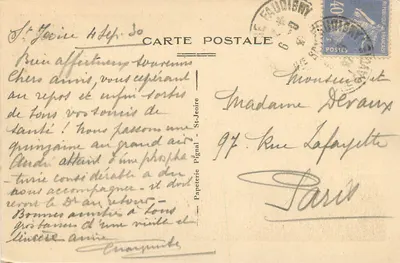 St Jeoire 4 Sep. 30
CARTE POSTALE
Bien affectueux souvenirs
Chers amis, vous espérant
au repos et enfin sortis
de tous vos soucis de
santé ! Nous passons une
quinzaine au grand air
André attend une phosphaturie considérable a du
nous accompagner - il doit
revoir le Dr au retour -
Bonnes amitiés à tous
gros baisers d'une vieille et
sincère amie
Marguerite
Papeterie Pégnal - St-Jeoire
FAUCIGNY
40
POSTES
Monsieur et
Madame Devaux
97 Rue Lafayette
Paris